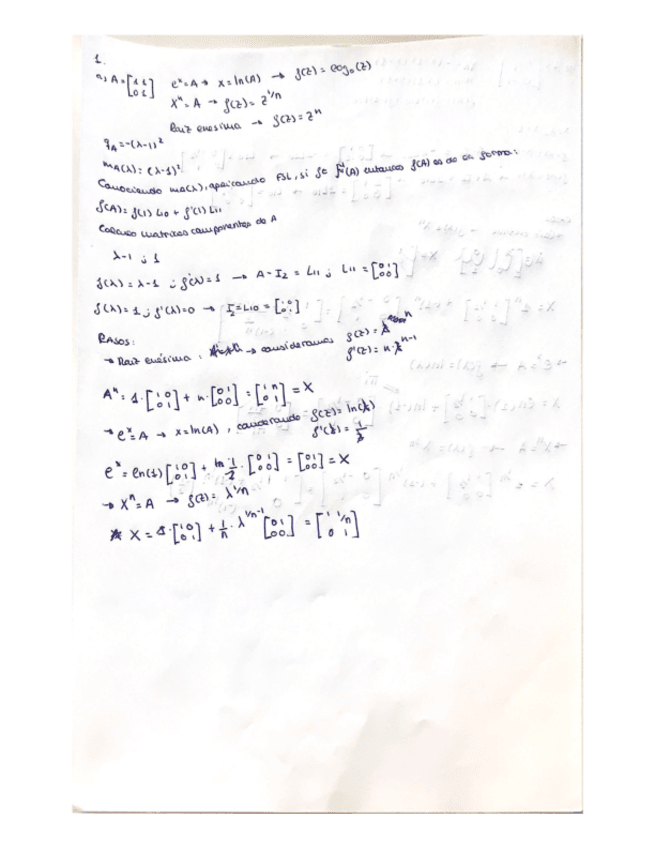 1.
a) A = [1 1; 0 1] e^x = A → x = ln(A) → f(z) = log₀(z)
X^n = A → f(z) = z^1/n
Raiz enesima → f(z) = z^n
q_A = -(λ-1)²
m_A(λ) = (λ-1)²
Conociendo m_A(λ), aplicando F.S.L, si f∈ F(A) entonces f(A) es de la forma:
f(A) = f(1) L10 + f'(1) L11
Calculo matrices componentes de A
λ-1 ; 1
f(λ) = λ-1 ; f'(λ) = 1 → A - I₂ = L11 ; L11 = [0 1; 0 0]
f(λ) = 1 ; f'(λ) = 0 → I₂ = L10 = [1 0; 0 1]
→ Raiz enésima, → consideramos f(z) = λ^n
f'(z) = n·λ^n-1
A^n = 1·[1 0; 0 1] + n·[0 1; 0 0] = [1 n; 0 1] = X
→ e^x = A → x = ln(A), f(z) = ln(λ)
f'(λ) = 1/λ
e^x = ln(1) [1 0; 0 1] + [0 1; 0 0] = [0 1; 0 0] = X
→ X^n = A → f(z) = λ^1/n
X = 1·[1 0; 0 1] + 1/n · λ^1/n-1 [0 1; 0 0] = [1 1/n; 0 1]